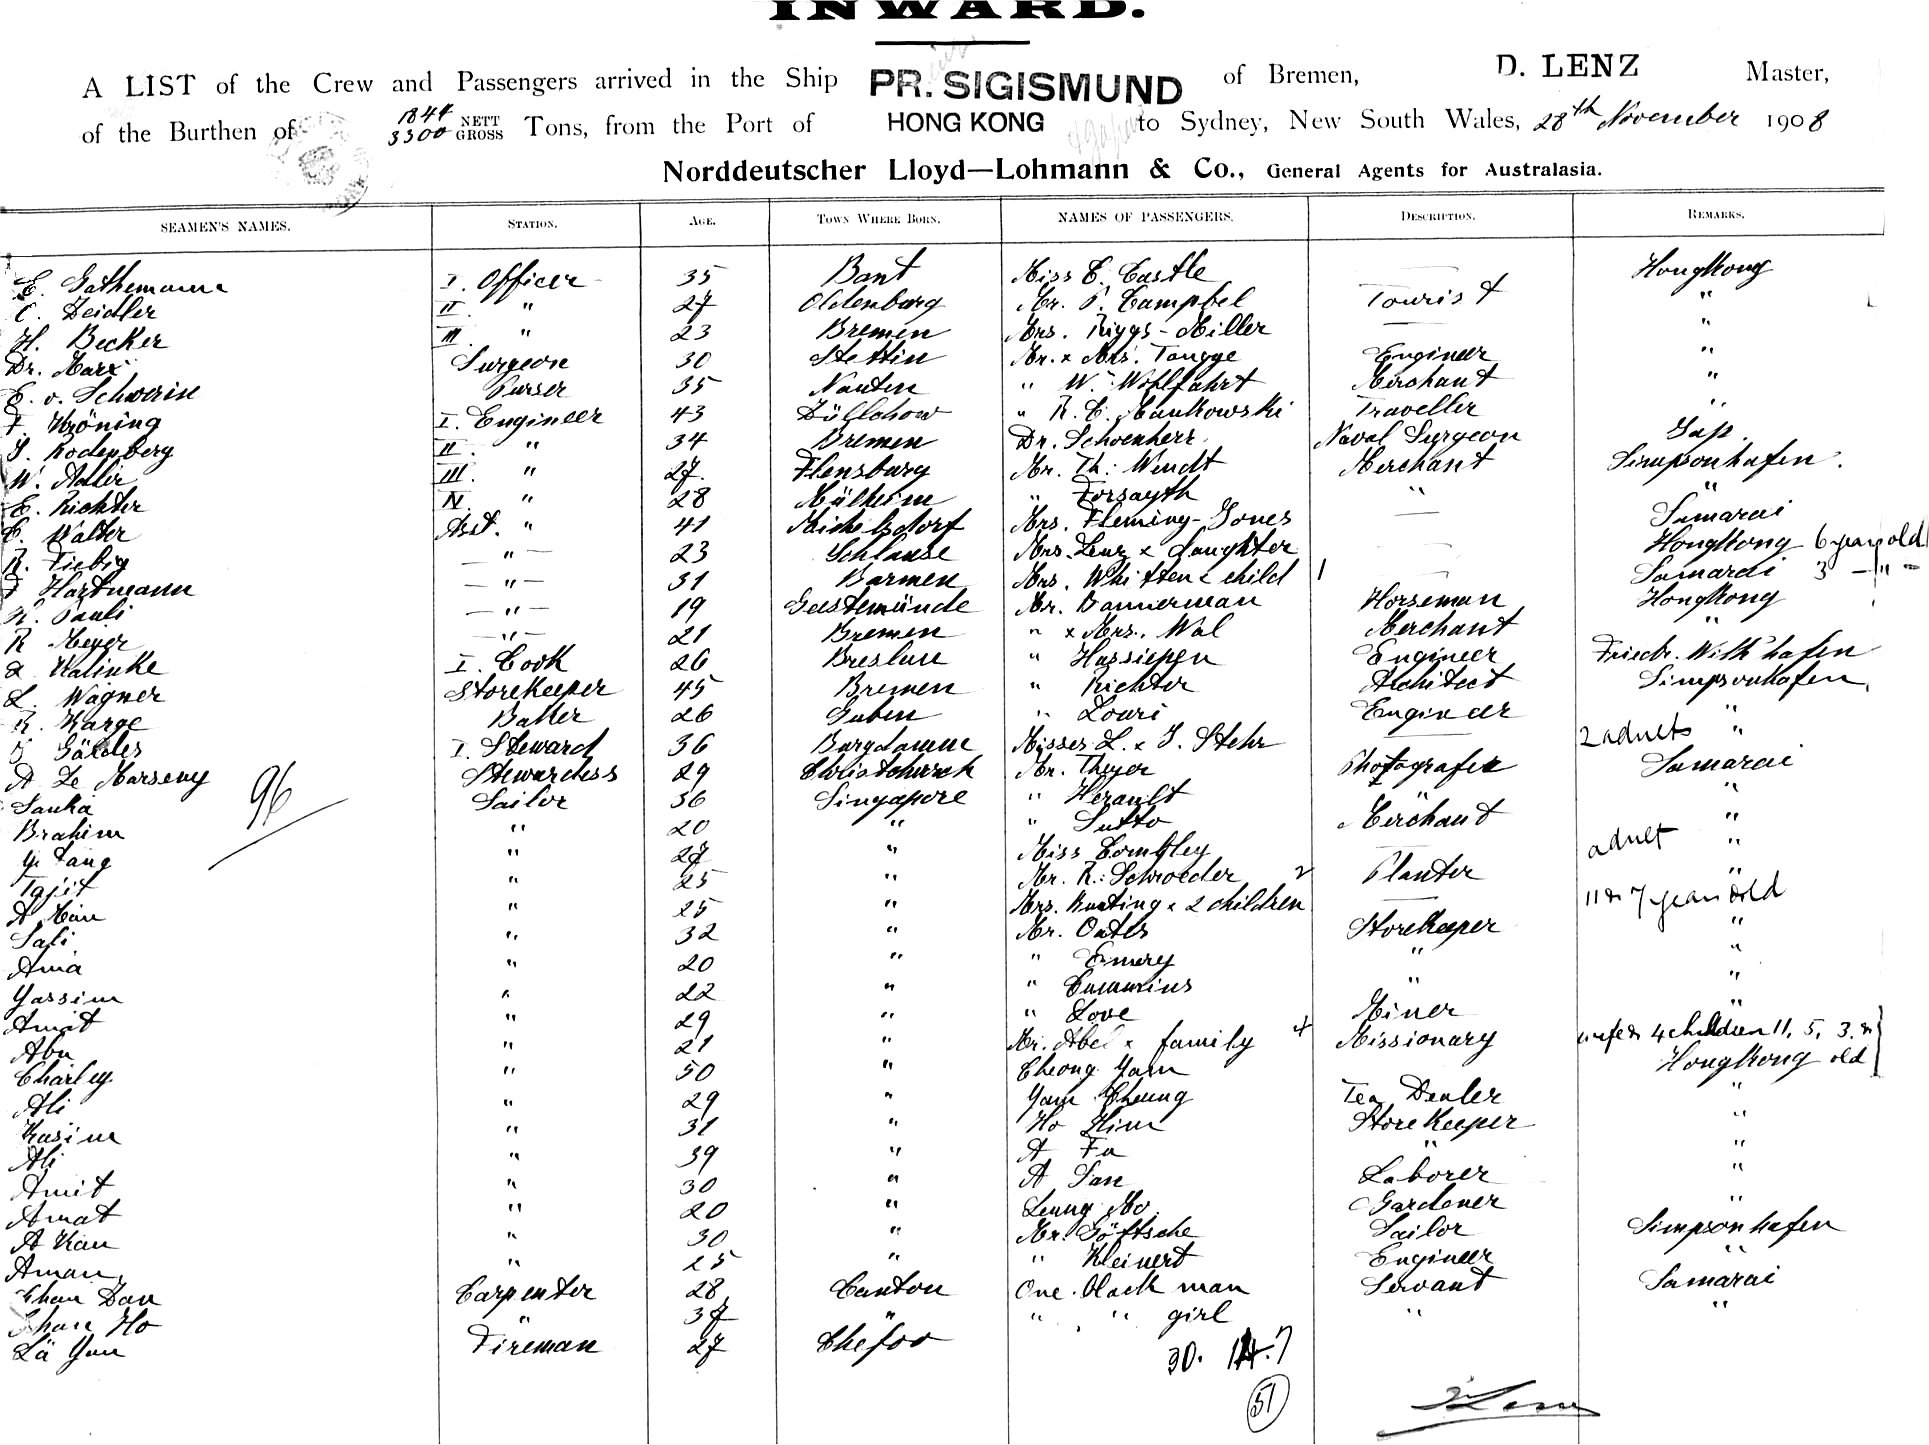 INWARD.
A LIST of the Crew and Passengers arrived in the Ship PR. SIGISMUND of Bremen, D. LENZ Master,
of the Burthen of 1844 NETT 3300 GROSS Tons, from the Port of HONG KONG to Sydney, New South Wales, 28th November 1908
Norddeutscher Lloyd—Lohmann & Co., General Agents for Australasia.
SEAMEN'S NAMES. STATION. AGE. TOWN WHERE BORN. NAMES OF PASSENGERS. DESCRIPTION. REMARKS.
E. Gathemann I. Officer 35 Bant Miss E. Castle — HongKong
C. Zeidler II. " 27 Oldenburg Mr. P. Campbel Tourist "
H. Becker III. " 23 Bremen Mrs. Riggs-Miller — "
Dr. Marx Surgeon 30 Stettin Mr. & Mrs. Tangge Engineer "
E. v. Schwerin Purser 35 Nauten " W. Wohlfahrt Merchant "
F. Kröning I. Engineer 43 Züllchow " R. C. Mankowski Traveller "
J. Rodenberg II. " 34 Bremen Dr. Schoenherr Naval Surgeon Jap.
W. Adler III. " 27. Flensburg Mr. Th. Wendt Merchant Simpsonhafen.
E. Richter IV. " 28 Mülheim " Forsayth " "
C. Walter Asst. " 41 Michelsdorf Mrs. Fleming-Jones — Samarai
R. Fiebig — " — 23 Schlause Mrs. Lenz & daughter — HongKong 6 years old
F. Hartmann — " — 31 Barmen Mrs. Whitten & child 1 Samarai 3 — " —
K. Pauli — " — 19 Geestemünde Mr. Bannerman Horseman HongKong
R. Meyer — " — 21 Bremen " & Mrs. Wal Merchant "
Kalinke I. Cook 26 Breslau " Hassiepen Engineer Friedr. Wilh'hafen
L. Wagner Storekeeper 45 Bremen " Richter Architect Simpsonhafen,
R. Karge Baker 26 Guben " Louri Engineer "
J. Gäldes I. Steward 36 Burgdamm Misses L. & J. Stehr — 2 adults "
A Le Marseny Stewardess 29 Christchurch Mr. Theyer Photografer Samarai
Sanka Sailor 36 Singapore " Herault " "
Brahim " 20 " " Sutto Merchant "
Y. Tang " 27 " Miss Combley adult "
Tajit " 25 " Mr. R. Schroeder 2 Planter "
A Kau " 25 " Mrs. Bunting & 2 children — 11 & 7 years old
Sali " 32 " Mr. Oates Storekeeper "
Ama " 20 " " Emery " "
Yassim " 22 " " Cummins " "
Amat " 29 " " Love Miner "
Abu " 21 " Mr. Abel & family 4 Missionary wife & 4 children 11, 5, 3. &
Charley " 50 " Cheong Yam HongKong old
Ali " 29 " Yam Cheung Tea Dealer "
Kasim " 31 " Ho Kim Storekeeper "
Ali " 39 " A Fa " "
Amit " 30 " A San Laborer "
Amat " 20 " Leung Mo. Gardener "
A Kau " 30 " Mr. Göttsche Sailor Simpsonhafen
Aman " 25 " " Kleinert Engineer "
Chan Dan Carpenter 28 Canton One black man Servant Samarai
Chan Ho " 37 " " " girl " "
Lä Yau Fireman 27 Chefoo
96
30. 14. 7
51